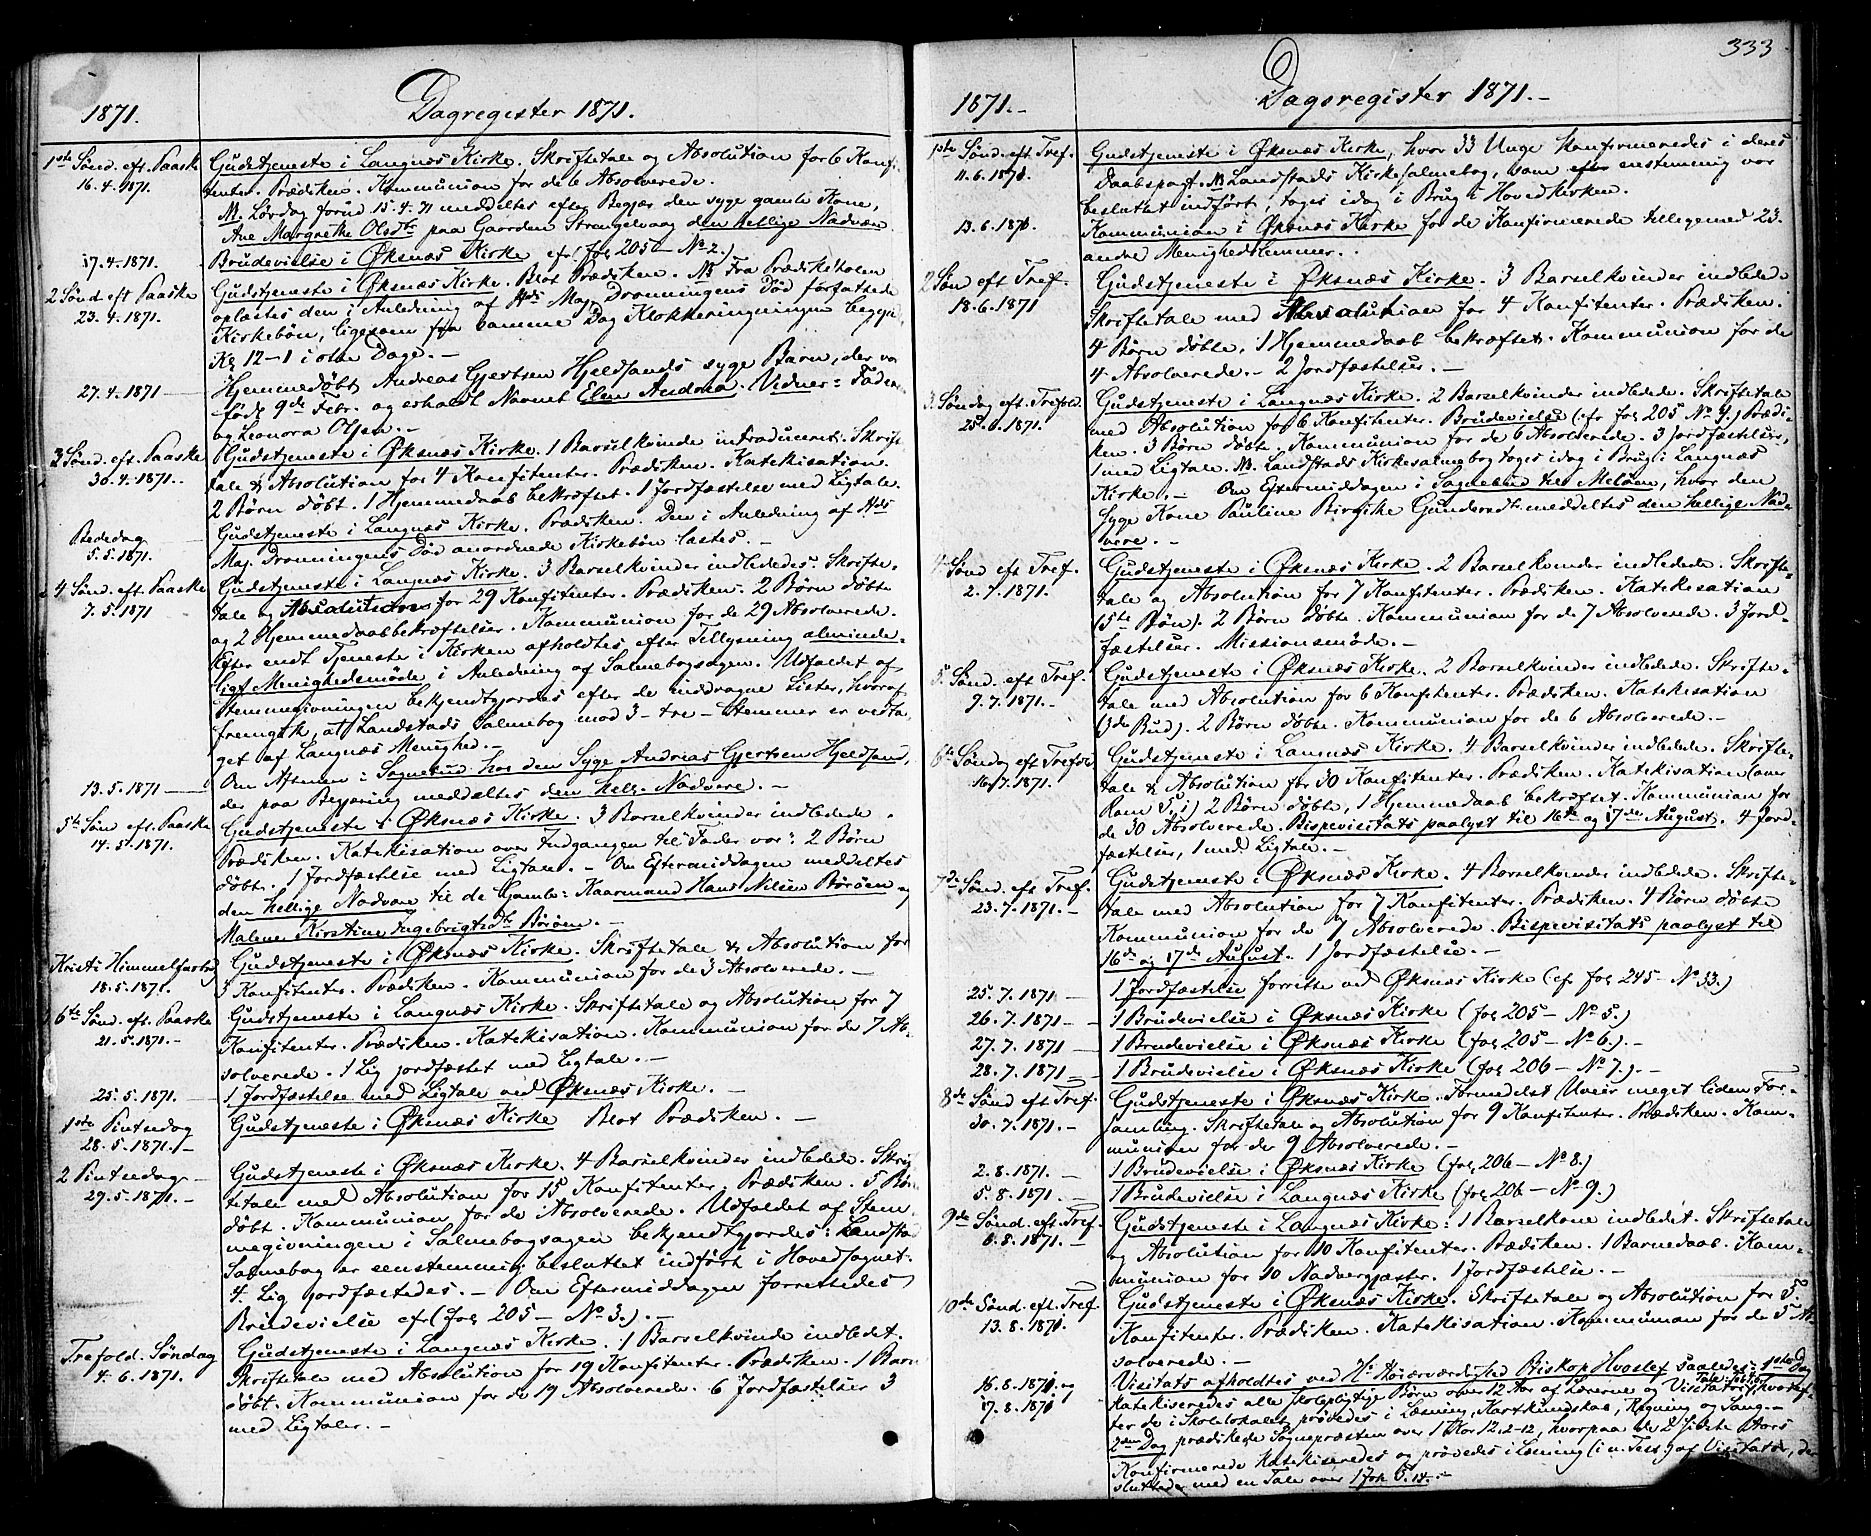 1871.
Dagregister 1871.
1ste Sønd. eft. Paaske
16.4.1871.
Gudstjeneste i Langnæs Kirke. Skriftetale og Absolution for 6 Konfi-
tenter. Prædiken. Kommunion for de 6 Absolverede.
NB. Lørdag forud 15.4.71 meddeltes efter Begjær den syge gamle Kone,
Ane Margrethe Olsdtr paa Gaarden Strengelvaag den hellige Nadvere
17.4.1871.
Brudevielse i Øksnæs Kirke cfr. fol 205 - No 2.)
2 Sønd eft Paaske
23.4.1871.
Gudstjeneste i Øksnæs Kirke. Blot Prædiken. NB Fra Prædikestolen
oplæstes den i Anledning af Hds Maj. Dronningens Død forfattede
Kirkebøn, ligesom fra samme Dag Klokkeringningen begynd
Kl 12-1 i otte Dage. -
27.4.1871
Hjemmedøbt Andreas Gjertsen Hjeldsands syge Barn, der var
født 9de Febr. og erholdt Navnet Elen Andrea. Vidner: Faderen
og Leonora Olsen. -
3 Sønd. eft. Paaske
30.4.1871.
Gudstjeneste i Øksnæs Kirke. 1 Barselkvinde introduceret. Skrifte-
tale & Absolution for 4 Konfitenter. Prædiken. Katekisation.
2 Børn døbt. 1 Hjemmedaab bekræftet. 1 Jordfæstelse med Ligtale.
Bededag
5.5.1871.
Gudstjeneste i Langnæs Kirke. Prædiken. Den i Anledning af Hds
Maj. Dronningens Død anordnede Kirkebøn læstes. -
4 Sønd. eft. Paaske
7.5.1871
Gudstjeneste i Langnæs Kirke. 3 Barselkvinder indledede. Skrifte-
tale og Absolution for 29 Konfitenter. Prædiken. 2 Børn døbte
og 2 Hjemmedaabsbekræftelser. Kommunion for de 29 Absolverede.
Efter endt Tjeneste i Kirken afholdtes efter Tillysning alminde-
ligt Menighedsmøde i Anledning af Salmebogsagen. Udfaldet af
Stemmegivningen bekjendtgjordes efter de inddragne Lister, hvoraf
fremgik, at Landstads Salmebog mod 3 - tre - Stemmer er vedta-
get af Langnæs Menighed. -
13.5.1871
Om Aftenen: Sognebud hos den Syge Andreas Gjertsen Hjeldsand,
der paa Begjæring meddeltes den hell. Nadvere. -
5te Sønd eft. Paaske
14.5.1871.
Gudstjeneste i Øksnæs Kirke. 3 Barselkvinder indledede.
Prædiken. Katekisation over Indgangen til Fader vor: 2 Børn
døbt. 1 Jordfæstelse med Ligtale. - Om Eftermiddagen meddeltes
den hellige Nadvere til de Gamle: Kaarmand Hans Nilsen Børøen og
Malene Kirstine Ingebrigtsdtr Børøen. -
Kristi Himmelfartsd
18.5.1871.
Gudstjeneste i Øksnæs Kirke. Skriftetale & Absolution for
3 Konfitenter. Prædiken. Kommunion for de 3 Absolverede. -
6te Sønd. eft. Paaske
21.5.1871. -
Gudstjeneste i Langnæs Kirke. Skriftetale og Absolution for 7
Konfitenter. Prædiken. Katekisation. Kommunion for de 7 Ab-
solverede. 1 Lig jordfæstet med Ligtale. -
25.5.1871. -
1 Jordfæstelse med Ligtale ved Øksnæs Kirke. -
1ste Pintsedag
28.5.1871. -
Gudstjeneste i Øksnæs Kirke Blot Prædiken. -
2 Pintsedag
29.5.1871. -
Gudstjeneste i Øksnæs Kirke. 4 Barselkvinder indledede. Skrif-
tetale med Absolution for 15 Konfitenter. Prædiken. 5 Børn
døbt. Kommunion for de Absolverede. Udfaldet af Stem-
megivningen i Salmebogsagen bekjendtgjordes: Landstads
Salmebog er eenstemmig besluttet indført i Hovedsognet.
4 Lig jordfæstedes. - Om Eftermiddagen forrettedes
Brudevielse cf (fol 205 - No 3.). -
Trefold. Søndag
4.6.1871.
Gudstjeneste i Langnæs Kirke. 1 Barselkvinde indledet.
Skriftetale med Absolution for 19 Konfitenter. Prædiken. 1 Barn
døbt. Kommunion for de 19 Absolverede. 6 Jordfæstelser 3
med Ligtaler. -
333
1871. -
Dagsregister 1871. -
1ste Sønd. eft Tref.
11.6.1871.
Gudstjeneste i Øksnæs Kirke, hvor 33 Unge konfirmeredes i deres
Daabspagt. NB Landstads Kirkesalmebog, som enstemmig var
besluttet indført, toges idag i Brug i Hovedkirken.
13.6.1871.
Kommunion i Øksnæs Kirke for de Konfirmerede tilligemed 23
andre Menighedslemmer. -
2 Søn eft Tref.
18.6.1871
Gudstjeneste i Øksnæs Kirke. 3 Barselkvinder indledede
Skriftetale med Absolution for 4 Konfitenter. Prædiken.
4 Børn døbte. 1 Hjemmedaab bekræftet. Kommunion for de
4 Absolverede. - 2 Jordfæstelser. -
3. Søndag eft. Trefold.
25.6.1871.
Gudstjeneste i Langnæs Kirke. 2 Barselkvinder indledede. Skriftetale
med Absolution for 6 Konfitenter. Brudevielse (cfr fol 205 No 4.) Prædi-
ken. 3 Børn døbt. Kommunion for de 6 Absolverede. 3 Jordfæstelser,
1 med Ligtale. NB. Landstads Kirkesalmebog toges idag i Brug i Langnæs
Kirke. - Om Eftermiddagen i Sognebud til Meløen, hvor den
syge Kone Pauline Birgitte Gundersdtr meddeltes den hellige Nad-
vere. -
4 Sønd eft Tref.
2.7.1871.
Gudstjeneste i Øksnæs Kirke. 2 Barselkvinder indledede. Skrifte-
tale og Absolution for 7 Konfitenter. Prædiken. Katekisation
(5te Bøn). 2 Børn døbte. Kommunion for de 7 Absolverede. 3 Jord-
fæstelser. Missionsmøde. -
5. Sønd. eft Tref.
9.7.1871. -
Gudstjeneste i Øksnæs Kirke. 2 Barselkvinder indledede. Skrifte-
tale med Absolution for 6 Konfitenter. Prædiken. Katekisation
(3die Bud). 2 Børn døbte. Kommunion for de 6 Absolverede. -
6te Søndag eft Trefol
16.7.1871.
Gudstjeneste i Langnæs Kirke. 4 Barselkvinder indledede. Skrifte-
tale & Absolution for 30 Konfitenter. Prædiken. Katekisation (over
Rom 5, 1) 2 Børn døbte, 1 Hjemmedaab bekræftet. Kommunion for
de 30 Absolverede. Bispevisitats paalyst til 16de og 17de August. 4 Jord-
fæstelser, 1 med Ligtale. -
7de Sønd. eft Tref.
23.7.1871. -
Gudstjeneste i Øksnæs Kirke. 4 Barselkvinder indledede. Skrifte-
tale med Absolution for 7 Konfitenter. Prædiken. 4 Børn døbte
Kommunion for de 7 Absolverede. Bispevisitats paalyst til
16de og 17de August. 1 Jordfæstelse. -
25.7.1871 -
1 Jordfæstelse forrettet ved Øksnæs Kirke (cf fol 245 - No 33.)
26.7.1871 -
1 Brudevielse i Øksnæs Kirke (fol 205 - No 5.)
27.7.1871
1 Brudevielse i Øksnæs Kirke (fol 205 - No 6.). -
28.7.1871 -
1 Brudevielse i Øksnæs Kirke (fol 206 - No 7.). -
8de Sønd eft Tref.
30.7.1871. -
Gudstjeneste i Øksnæs Kirke. Formedelst Uveir meget liden For-
samling. Skriftetale og Absolution for 9 Konfitenter. Prædiken. Kom-
munion for de 9 Absolverede. -
2.8.1871. -
1 Brudevielse i Øksnæs Kirke (fol 206 - No 8.)
5.8.1871. -
1 Brudevielse i Langnæs Kirke (fol 206 - No 9.)
9de Sønd. eft. Tref.
6.8.1871. -
Gudstjeneste i Langnæs Kirke: 1 Barselkone indledet. Skriftetale
og Absolution for 10 Konfitenter. Prædiken. 1 Barnedaab. Kom-
munion for 10 Nadvergjæster. 1 Jordfæstelse. -
10de Sønd. eft. Tref.
13.8.1871.
Gudstjeneste i Øksnæs Kirke. Skriftetale og Absolution for 5.
Konfitenter. Prædiken. Katekisation. Kommunion for de 5 Ab-
solverede. -
16.8.1871 og
17.8.1871
Visitats afholdtes ved Hs Høiærværdighed Biskop Hvoslef saaledes: 1ste Dag
Katekiseredes alle skolepligtige Børn over 12 Aar af Lærerne og Visitator, hvoref-
ter de i Skolelokalet prøvedes i Læsning, Kartkundskab, Regning og Sang. -
2den Dag prædikede Sognepræsten over 1 Kor 12, 2-12, hvorpaa de 2 sidste Aars
Konfirmerede Katekiseredes og prøvedes i Læsning (i n. Test) af Visitator, der
sluttede med en Tale over 1 Joh 5.14. -